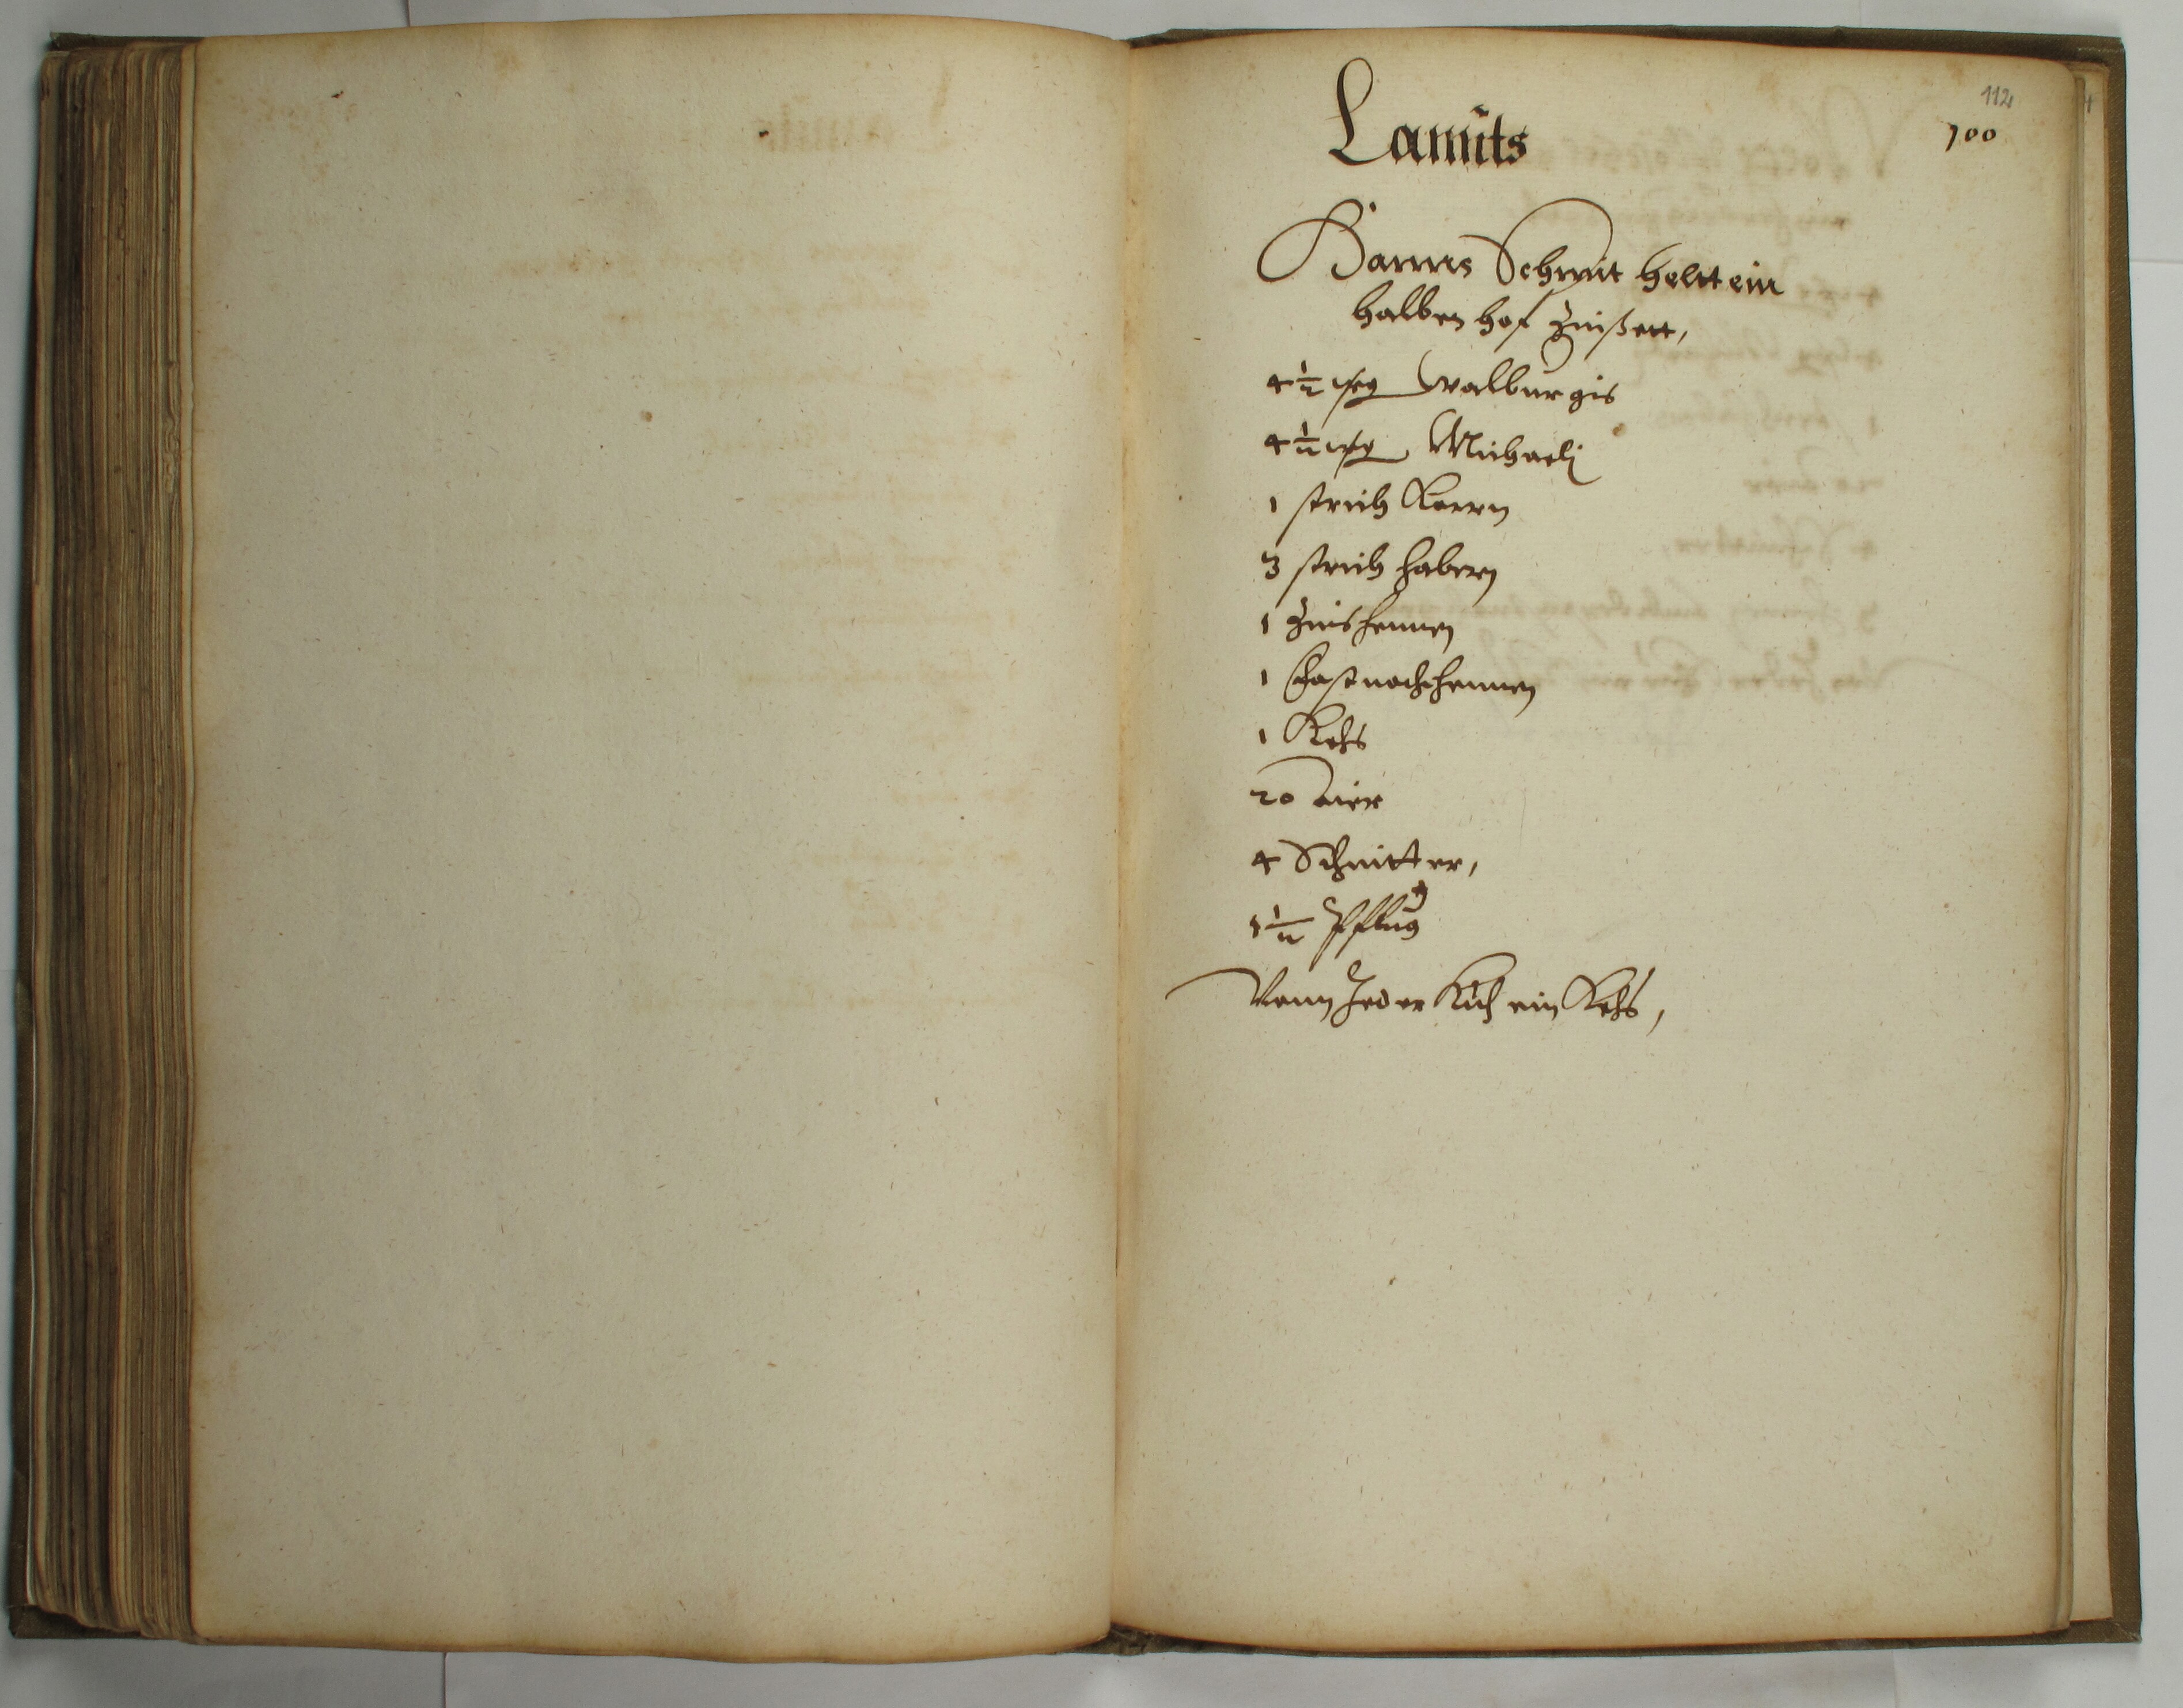 112
100
Lamits
Hanns Schmit heltt ein
halben hof Zinßett,
4½ ßg Walburgis
4½ ßg Michaelj
1 strich Korrn
3 strich habern
1 Zinshennen
1 Fastnachthennen
1 Kehs
20 Aier
4 Schnitter,
1½ Pfflug
Vonn Jeder Kuh ein Kehs,